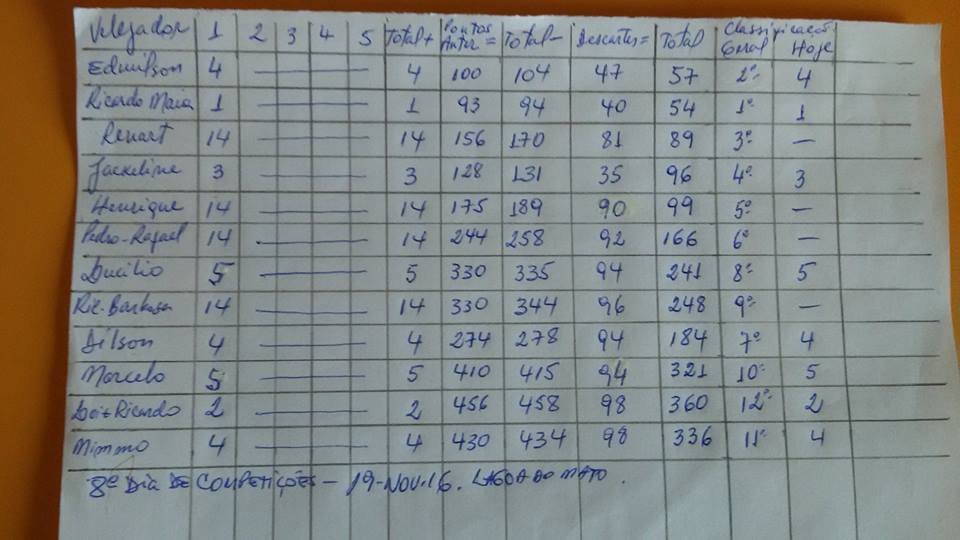 Velejador 1 2 3 4 5 Total + Pontos Anter = Total - Descartes = Total Classificação Geral Hoje
Edmilson 4 — 4 100 104 47 57 2º 4
Ricardo Maia 1 — 1 93 94 40 54 1º 1
Renart 14 — 14 156 170 81 89 3º —
Jackeline 3 — 3 128 131 35 96 4º 3
Henrique 14 — 14 175 189 90 99 5º —
Pedro-Rafael 14 — 14 244 258 92 166 6º —
Ducilio 5 — 5 330 335 94 241 8º 5
Ric-Barbosa 14 — 14 330 344 96 248 9º —
Dilson 4 — 4 274 278 94 184 7º 4
Marcelo 5 — 5 410 415 94 321 10º 5
Luiz Ricardo 2 — 2 456 458 98 360 12º 2
Mimmo 4 — 4 430 434 98 336 11º 4
8º DIA DE COMPETIÇÕES - 19-NOV-16. LAGOA DO MATO.